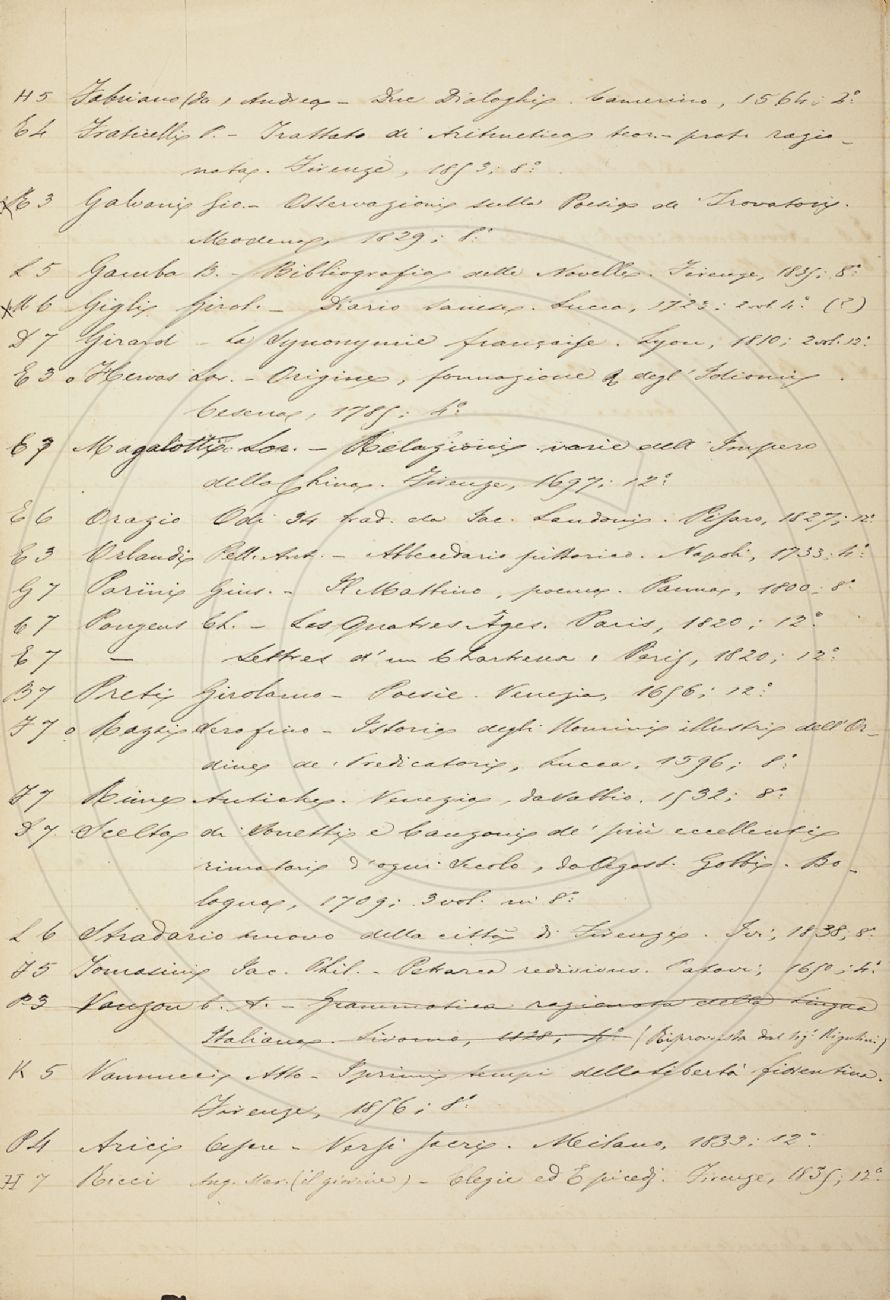 H 5 Fabriano (da, Andrea - Due Dialoghi. Camerino, 1564; 4.°
E 4 Fraticelli P. - Trattato di Aritmetica teor.- prat. ragio-
nata. Firenze, 1853; 8.°
x E 3 Galvani Gio. - Osservazioni sulla Poesia de' Trovatori.
Modena, 1829; 8.°
L 5 Gamba B. - Bibliografia delle Novelle. Firenze, 1835; 8.°
x M 6 Gigli Girol. - Diario Sanese. Lucca, 1723; 2 vol. 4.° (2)
D 7 Girard - La Synonymie françaife. Lyon, 1810; 2 vol. 12.°
E 3 o Hervas Lor. - Origine, formazione & degl' Idiomi.
Cesena, 1785; 4.°
E 7 Magalotti Lor. - Relazioni varie dell' Impero
della China. Firenze, 1697; 12.°
E 6 Orazio Odi 34 trad. da Jac. Landoni. Pesaro, 1827; 12.°
E 3 Orlandi Pell. Ant. - Abbecedario pittorico. Napoli, 1733; 4.°
G 7 Parini Gius. - Il Mattino, poema. Parma, 1800; 8.°
C 7 Pougens Ch. - Les Quatres Âges. Paris, 1820; 12.°
E 7 - Lettres d'un Chartreux. Paris, 1820; 12.°
B 7 Preti Girolamo - Poesie. Venezia, 1656; 12.°
F 7 o Razzi Serafino - Istoria degli Uomini illustri dell' Or-
dine de' Predicatori, Lucca, 1596; 8.°
F 7 Rime Antiche. Venezia, da Sabbio, 1532; 8.°
D 7 Scelta di Sonetti e Canzoni de' più eccellenti
rimatori d'ogni Secolo, da Agost. Gobbi. Bo-
logna, 1709; 3 vol. in 8.°
L 6 Stradario nuovo della città di Firenze. Ivi, 1838, 8.°
F 5 Tomasini Jac. Phil. - Petrarca redivivus. Patavi, 1650; 4.°
P 3 Vanzon C. A. - Grammatica ragionata della Lingua
Italiana. Livorno, 1828; 4.° (Riprovista dal Sig. Rigutini)
K 5 Vannucci Atto - I primi tempi della libertà fiorentina.
Firenze, 1856; 8.°
P 4 Arici Cesare - Versi sacri. Milano, 1833; 12.°
H 7 Ricci Ang. Mar. (il giovine) - Elegie ed Epicedj. Firenze, 1835; 12.°